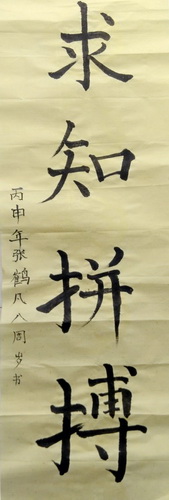 求知拼搏
丙申年张鹤凡八周岁书